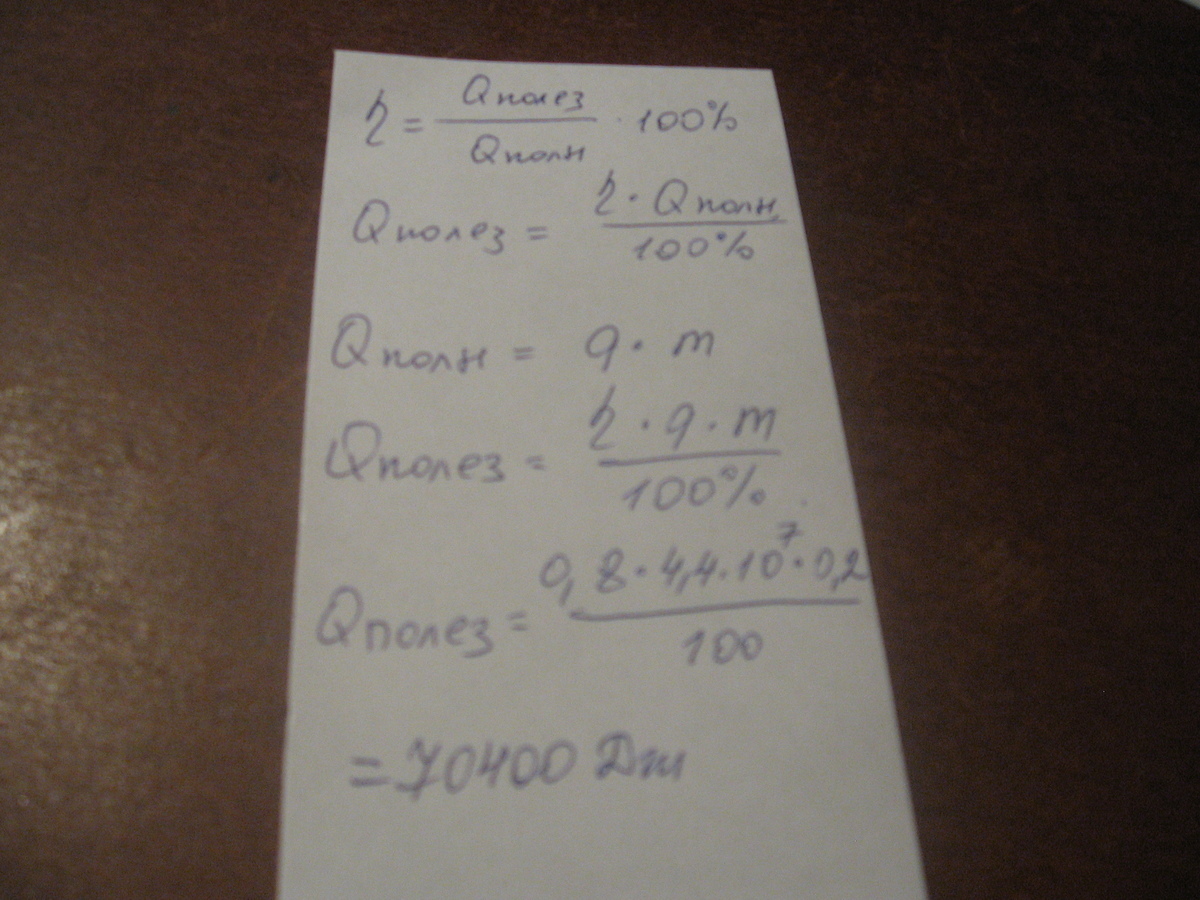 η = Qполез / Qполн · 100%
Qполез = η · Qполн / 100%
Qполн = q · m
Qполез = η · q · m / 100%
Qполез = 0,8 · 4,4 · 10⁷ · 0,2 / 100
= 70400 Дж